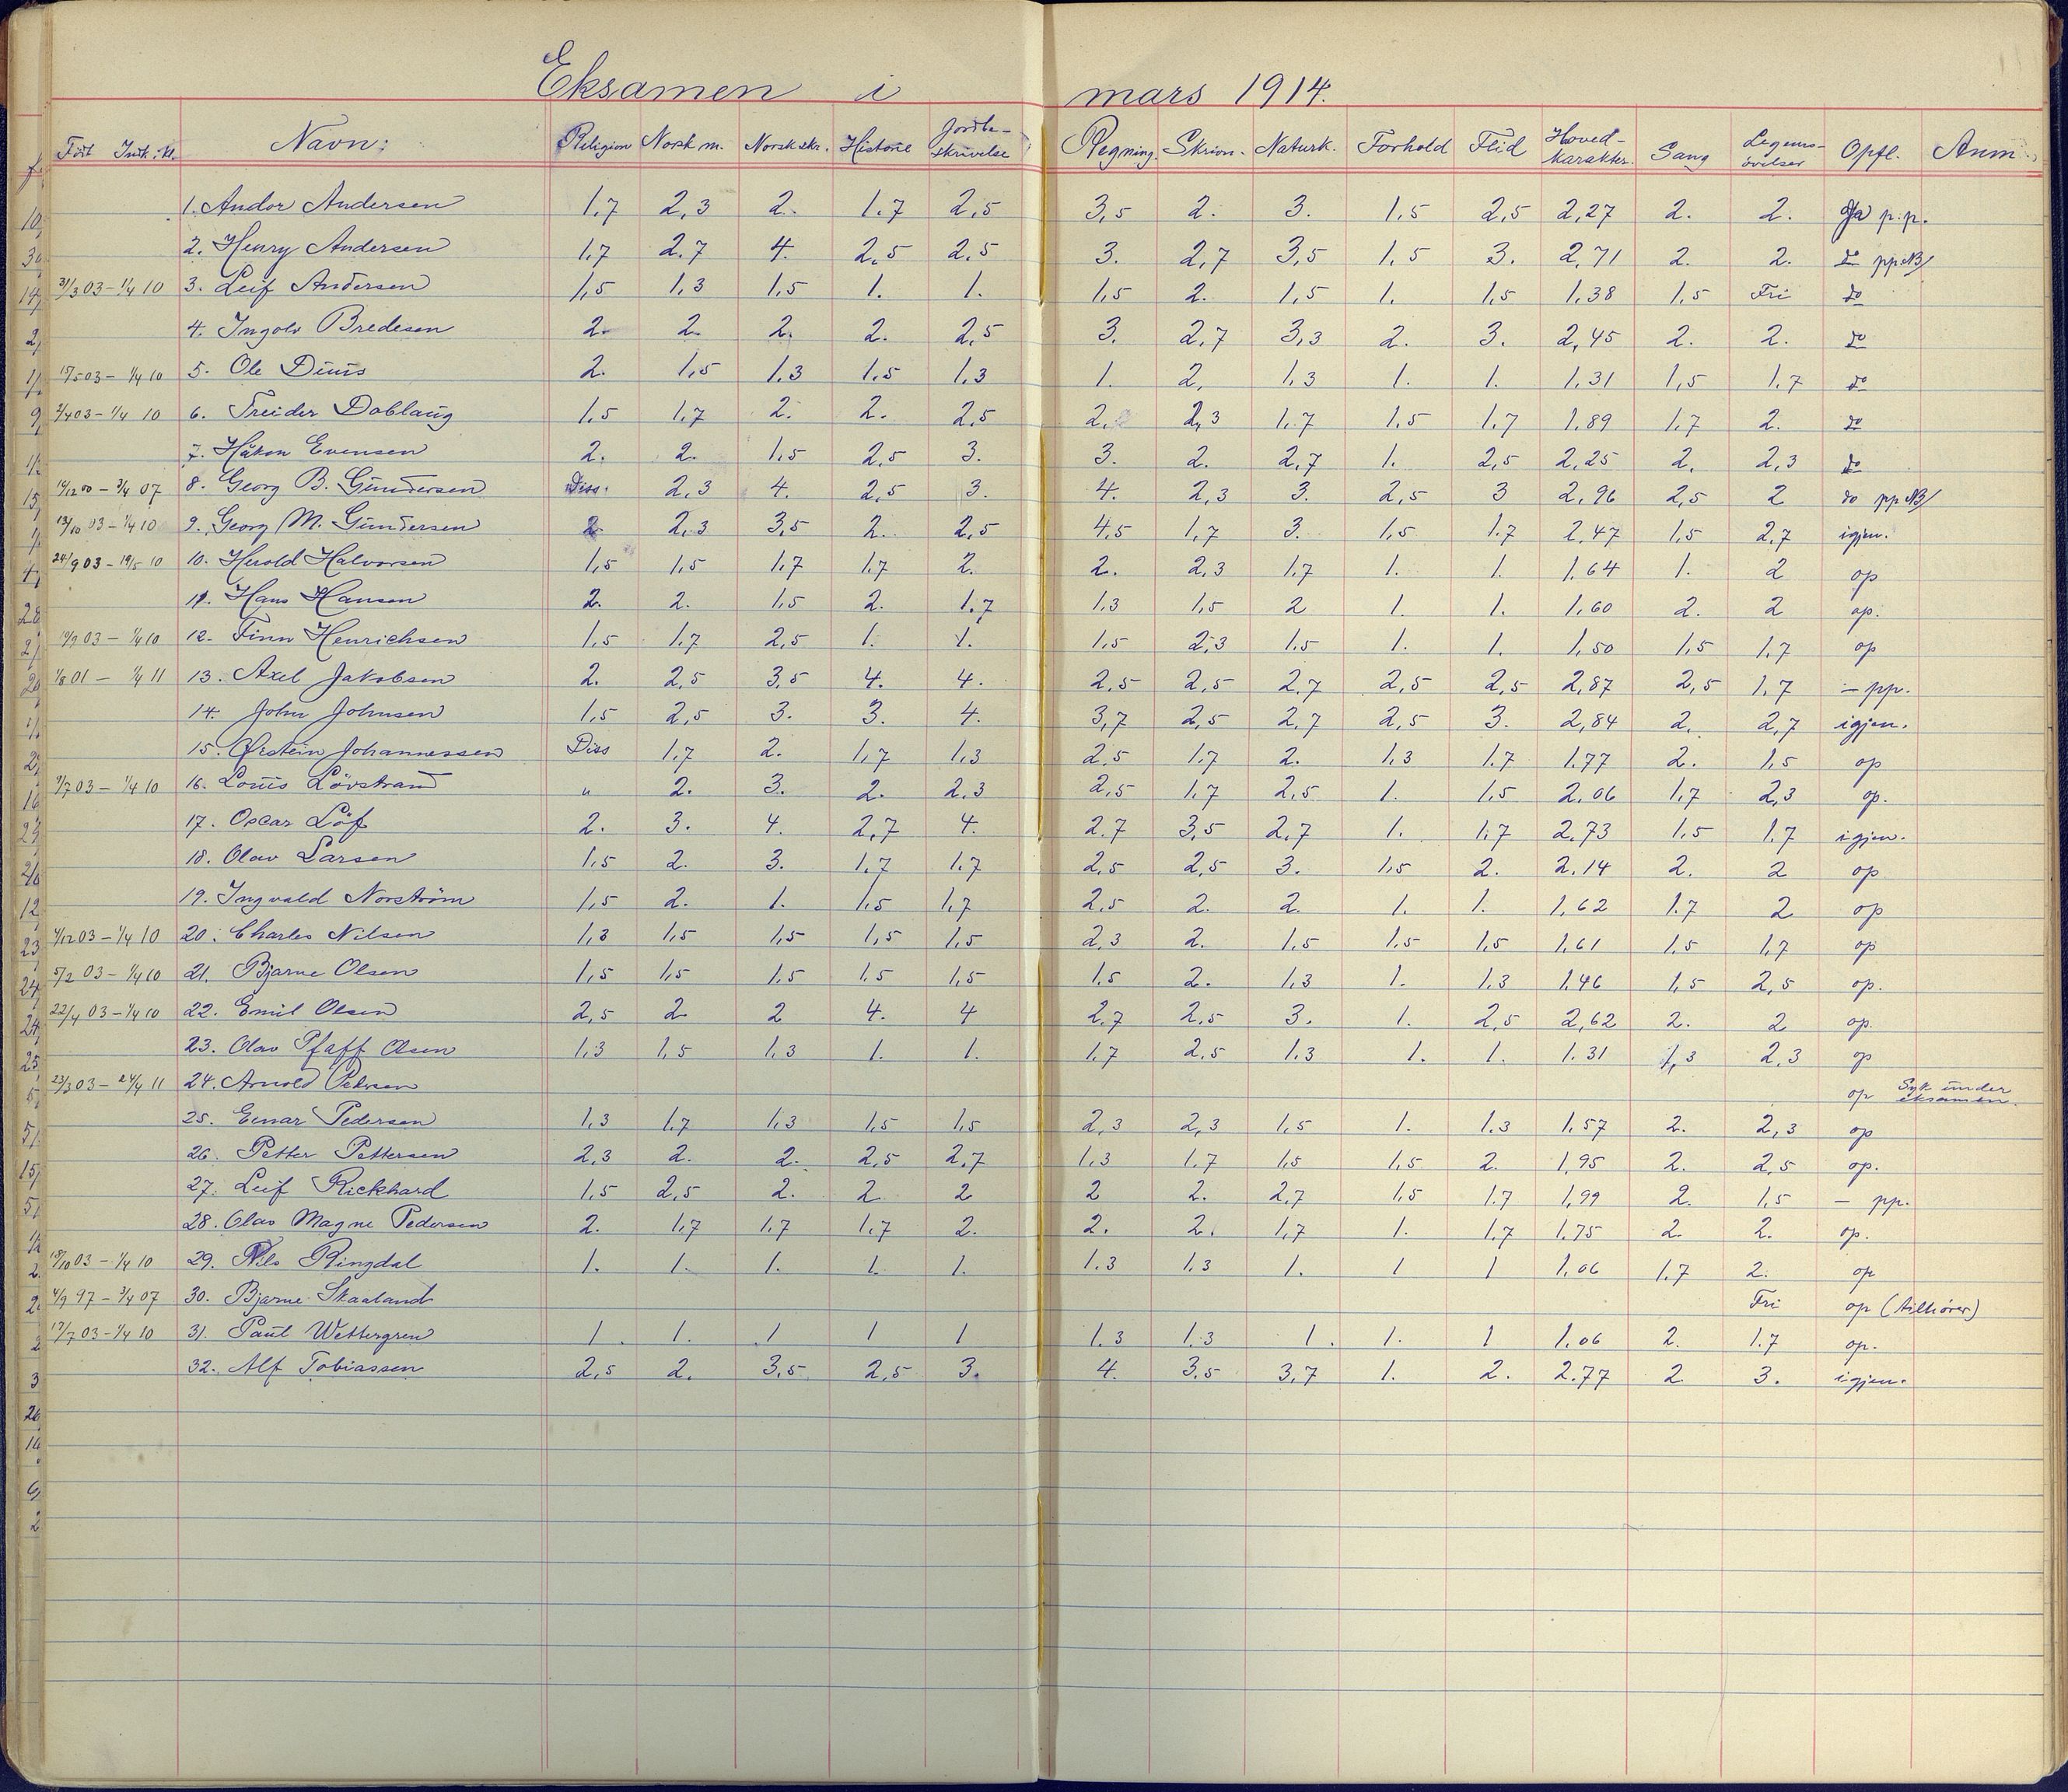 Eksamen i mars 1914.
Født Indk. i kl. Navn: Religion Norsk m. Norsk skr. Historie Jordbeskrivelse Regning. Skrivn. Naturk. Forhold Flid Hovedkarakter. Sang Legemsövelser Opfl. Anm.
1. Andor Andersen 1,7 2,3 2. 1.7 2,5 3,5 2. 3. 1,5 2,5 2,27 2. 2. Ja p.p.
2. Henry Andersen 1,7 2.7 4. 2,5 2,5 3. 2,7 3,5 1,5 3. 2,71 2. 2. do pp NB/
31/3 03 - 1/4 10 3. Leif Andersen 1,5 1,3 1,5 1. 1. 1,5 2. 1,5 1. 1,5 1,38 1,5 Fri do
4. Ingolv Bredesen 2. 2. 2. 2. 2,5 3. 2,7 3,3 2. 3. 2,45 2. 2. do
15/5 03 - 1/4 10 5. Ole Diüs 2. 1,5 1.3 1,5 1,3 1. 2, 1,3 1. 1. 1,31 1,5 1,7 do
2/4 03 - 1/4 10 6. Treider Doblaug 1,5 1,7 2. 2. 2,5 2. 2,3 1,7 1,5 1,7 1,89 1,7 2. do
7. Håkon Evensen 2. 2. 1,5 2,5 3. 3. 2. 2,7 1. 2,5 2,25 2. 2,3 do
14/12 00 - 3/4 07 8. Georg B. Gundersen Diss. 2,3 4. 2,5 3. 4. 2,3 3. 2,5 3 2,96 2,5 2 do pp NB/
13/10 03 - 1/4 10 9. Georg M. Gundersen 2. 2,3 3,5 2. 2,5 4,5 1,7 3. 1,5 1.7 2,47 1,5 2,7 igjen.
24/9 03 - 19/5 10 10. Herold Halvorsen 1,5 1,5 1,7 1,7 2. 2. 2,3 1,7 1. 1. 1.64 1. 2 op
11. Hans Hansen 2. 2. 1,5 2. 1.7 1,3 1,5 2 1. 1. 1,60 2. 2 op.
19/9 03 - 1/4 10 12. Finn Henrichsen 1,5 1,7 2,5 1. 1. 1,5 2,3 1.5 1. 1. 1,50 1,5 1.7 op
1/8 01 - 1/4 11 13. Axel Jakobsen 2. 2,5 3,5 4. 4. 2,5 2,5 2,7 2,5 2,5 2,87 2,5 1,7 - pp.
14. John Johnsen 1,5 2,5 3. 3. 4. 3,7 2,5 2.7 2,5 3. 2,84 2. 2,7 igjen.
15. Øistein Johannessen Diss 1,7 2. 1,7 1,3 2,5 1.7 2. 1,3 1.7 1.77 2. 1,5 op
9/7 03 - 1/4 10 16. Louis Lövstrand " 2. 3. 2. 2,3 2,5 1,7 2,5 1. 1,5 2,06 1,7 2,3 op.
17. Oscar Löf 2. 3. 4. 2,7 4. 2.7 3,5 2,7 1. 1,7 2,73 1,5 1.7 igjen.
18. Olav Larsen 1,5 2. 3. 1,7 1.7 2,5 2,5 3. 1,5 2. 2.14 2. 2 op
19. Ingvald Norström 1,5 2. 1. 1,5 1,7 2,5 2. 2. 1. 1. 1,62 1.7 2 op
4/12 03 - 1/4 10 20. Charles Nilsen 1,3 1,5 1,5 1,5 1,5 2,3 2. 1,5 1,5 1,5 1,61 1,5 1,7 op
5/2 03 - 1/4 10 21. Bjarne Olsen 1,5 1,5 1,5 1,5 1,5 1,5 2. 1,3 1. 1,3 1.46 1,5 2,5 op.
22/4 03 - 1/4 10 22. Emil Olsen 2,5 2 2 4. 4 2.7 2,5 3. 1. 2,5 2,62 2. 2 op.
23. Olav Pfaff Olsen 1,3 1,5 1,3 1. 1. 1.7 2,5 1,3 1. 1. 1.31 1,3 2,3 op
23/3 03 - 24/4 11 24. Arnold Pedersen op Syk under eksamen.
25. Einar Pedersen 1,3 1,7 1,3 1,5 1,5 2,3 2,3 1,5 1. 1.3 1.57 2. 2,3 op
26. Petter Pettersen 2,3 2. 2. 2,5 2,7 1,3 1.7 1,5 1,5 2. 1,95 2. 2,5 op.
27. Leif Rickhard 1,5 2,5 2. 2 2 2 2. 2,7 1,5 1.7 1,99 2. 1,5 - pp.
28. Olav Magne Pedersen 2. 1,7 1,7 1,7 2. 2. 2. 1,7 1. 1.7 1.75 2. 2. op.
18/10 03 - 1/4 10 29. Nils Ringdal 1. 1. 1. 1. 1. 1.3 1.3 1. 1 1 1,06 1,7 2. op
4/9 97 - 3/4 07 30. Bjarne Skaaland Fri op (tilhører)
17/7 03 - 1/4 10 31. Paul Wettergren 1. 1. 1 1 1 1.3 1.3 1. 1. 1 1.06 2. 1.7 op.
32. Alf Tobiassen 2,5 2. 3,5 2,5 3. 4. 3.5 3,7 1. 2. 2.77 2. 3. igjen.